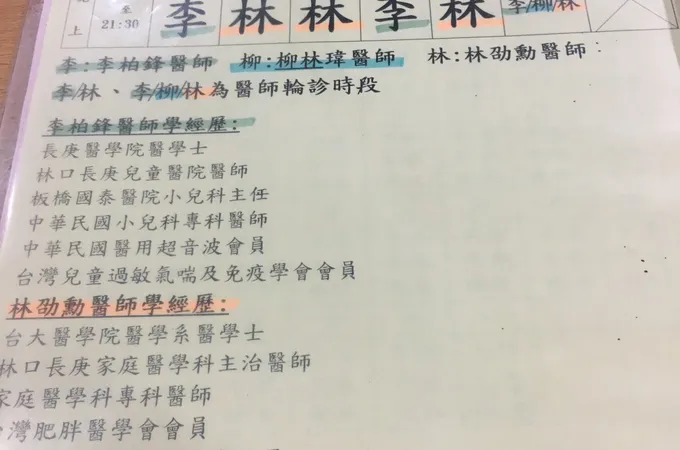 至 李 林 林 李 林 李/柳/林
上 21:30
李:李柏鋒醫師 柳:柳林瑋醫師 林:林劭勳醫師
李/林、李/柳/林為醫師輪診時段
李柏鋒醫師學經歷:
長庚醫學院醫學士
林口長庚兒童醫院醫師
板橋國泰醫院小兒科主任
中華民國小兒科專科醫師
中華民國醫用超音波會員
台灣兒童過敏氣喘及免疫學會會員
林劭勳醫師學經歷:
台大醫學院醫學系醫學士
林口長庚家庭醫學科主治醫師
家庭醫學科專科醫師
灣肥胖醫學會會員